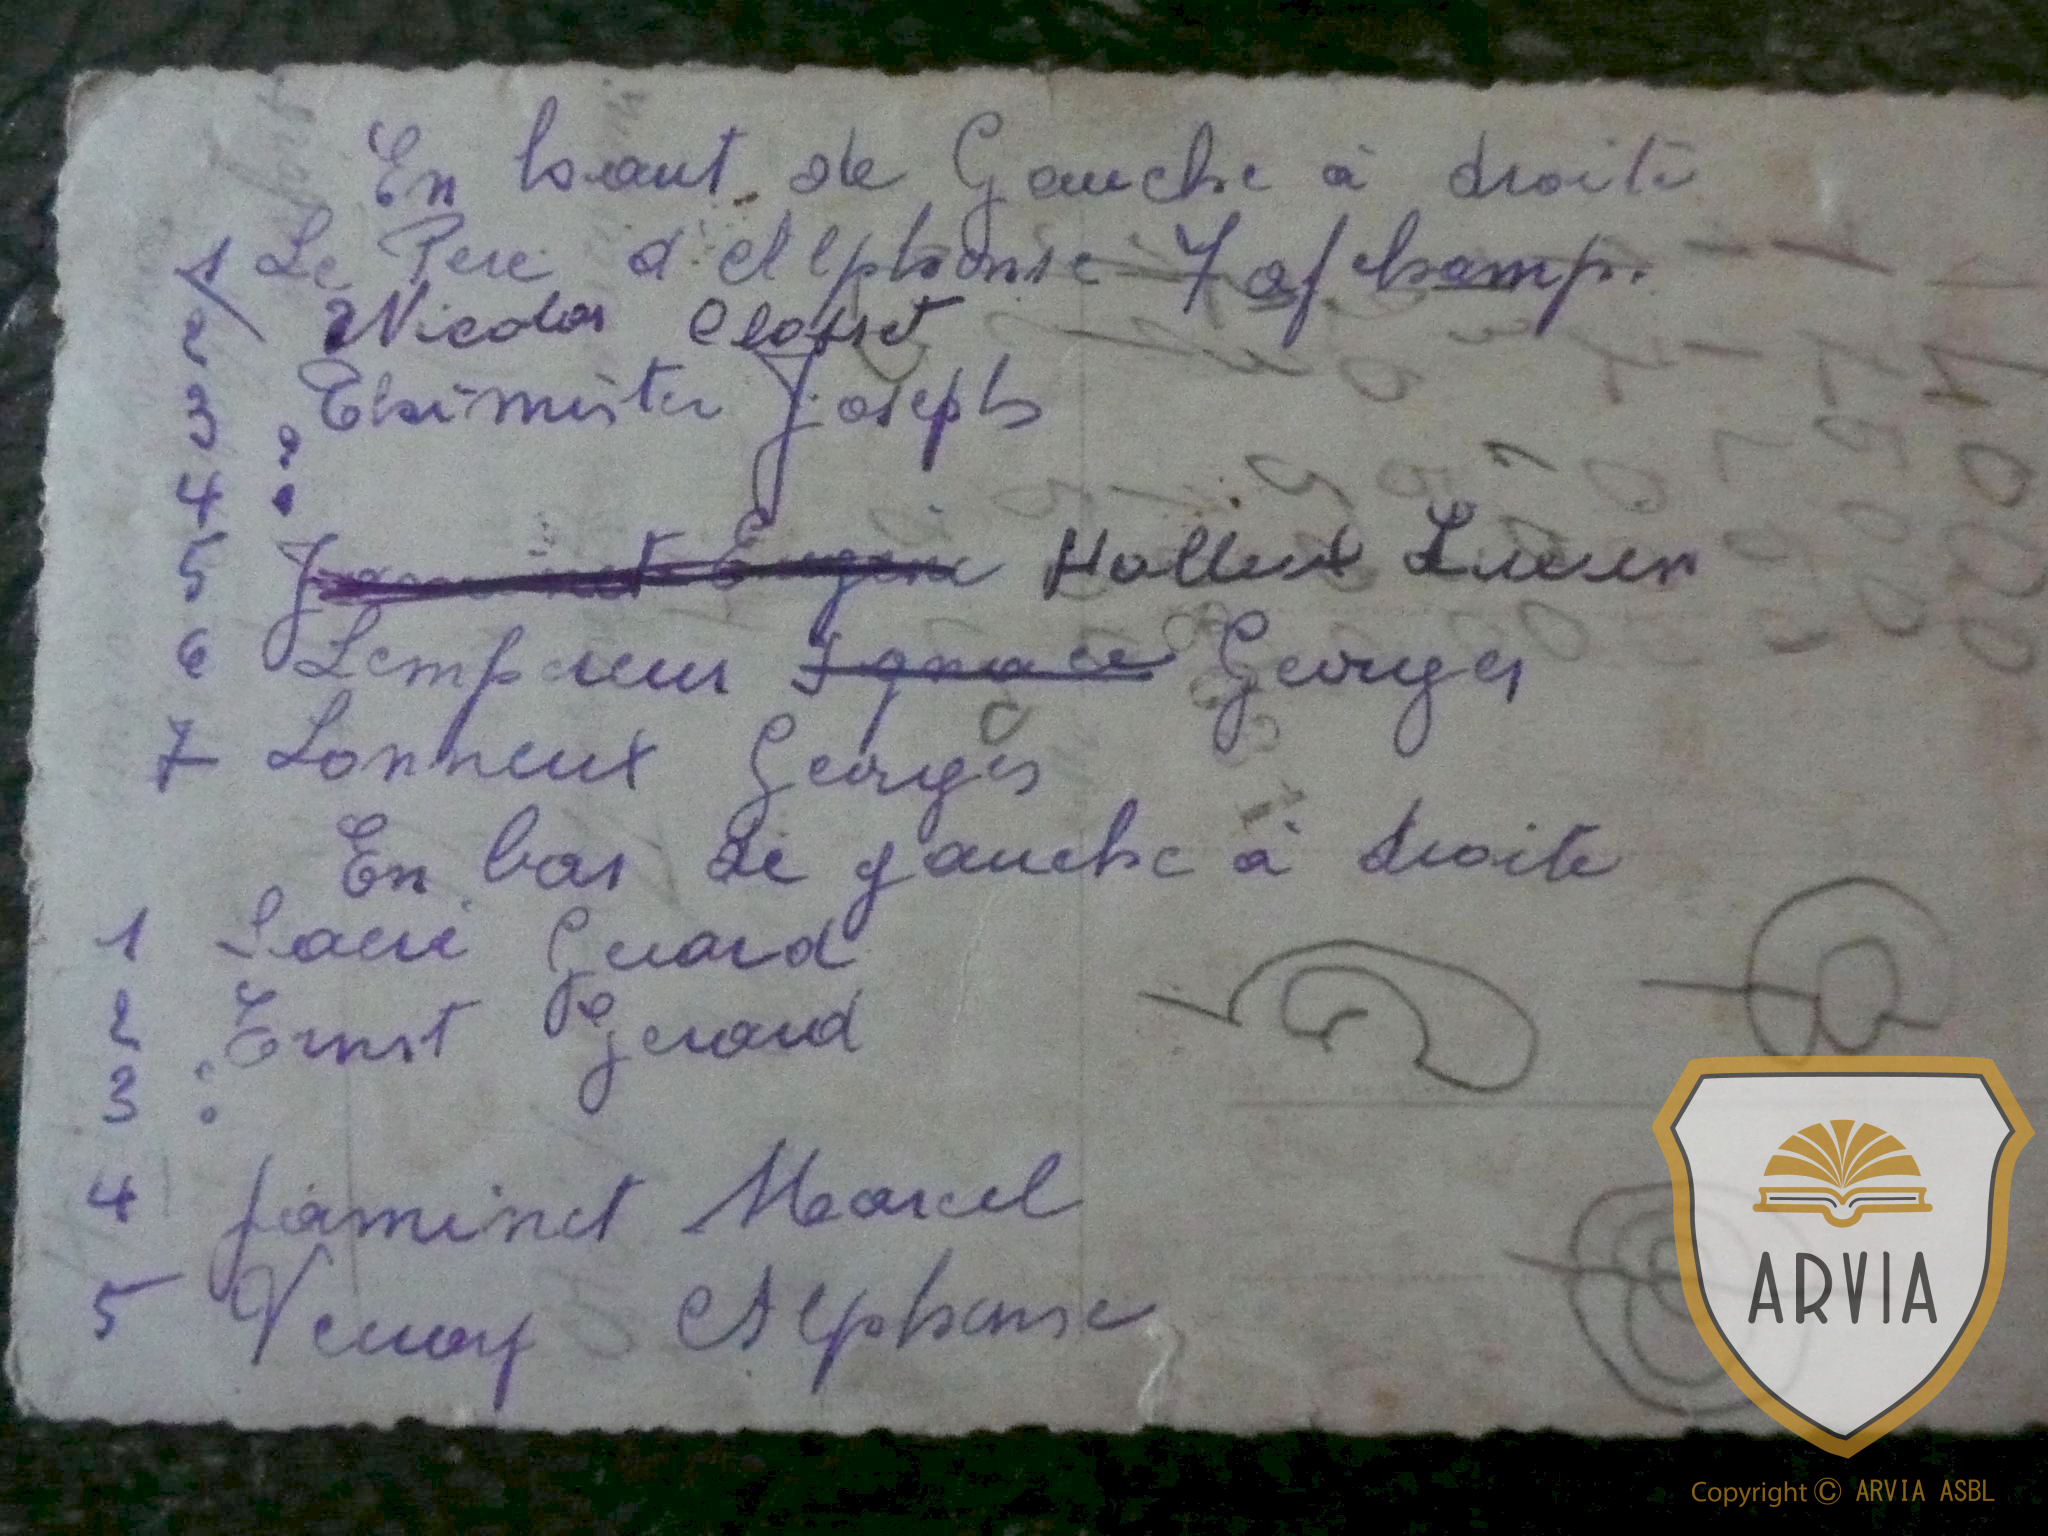 En haut de Gauche à droite
1 Le Pere d'Alphonse Fafchamp.
2 Nicolas Closset
3 Thimister Joseph
4 :
5 Jaminet Eugène Halleux Lucien
6 Lempereur Ignace Georges
7 Lonneux Georges
En bas de gauche à droite
1 Gerard
2 Ernst Gerard
3 :
4 jaminet Marcel
5 Alphonse
ARVIA
Copyright © ARVIA ASBL